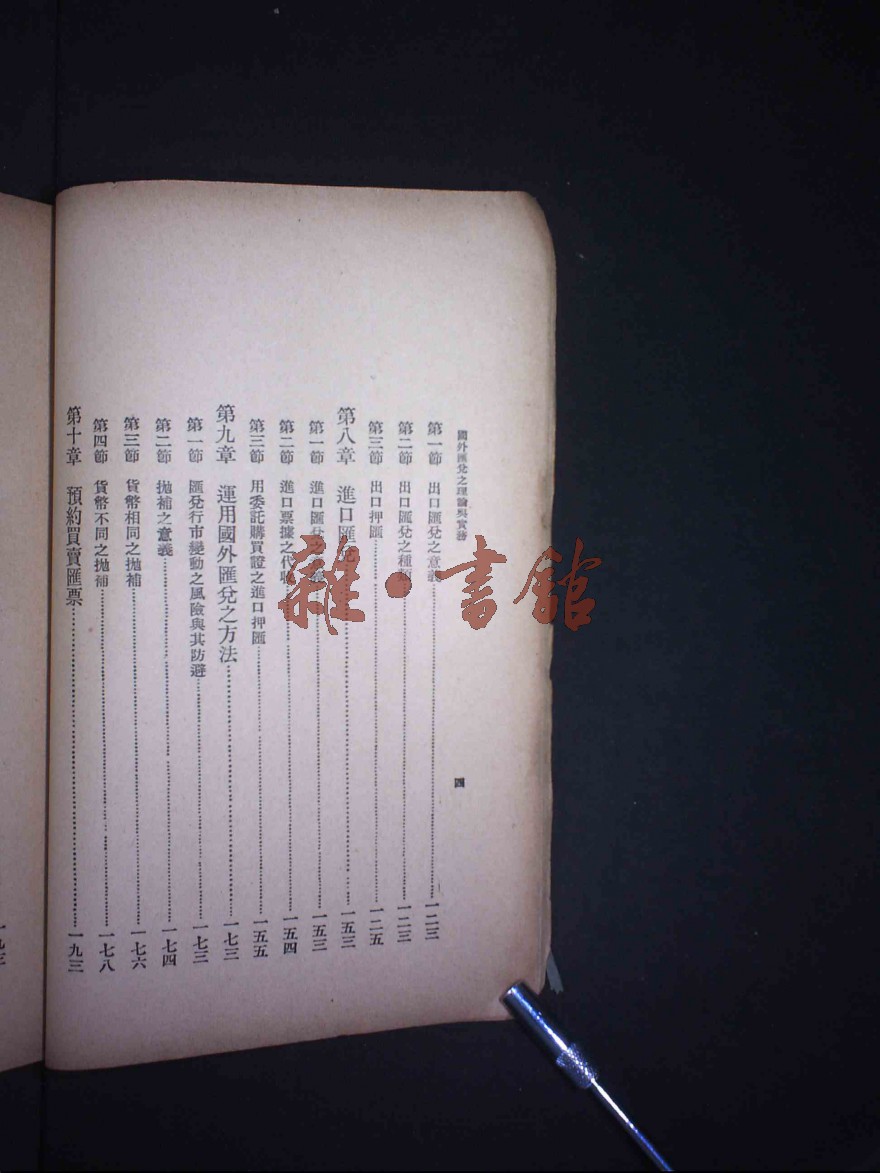 國外匯兌之理論與實務
四
第一節 出口匯兌之意義 一二三
第二節 出口匯兌之種類 一二三
第三節 出口押匯 一二五
第八章 進口匯兌 一五三
第一節 進口匯兌之意義 一五三
第二節 進口票據之代收 一五四
第三節 用委託購買證之進口押匯 一五五
第九章 運用國外匯兌之方法 一七三
第一節 匯兌行市變動之風險與其防避 一七三
第二節 拋補之意義 一七四
第三節 貨幣相同之拋補 一七六
第四節 貨幣不同之拋補 一七八
第十章 預約買賣匯票 一九三
雜·書館